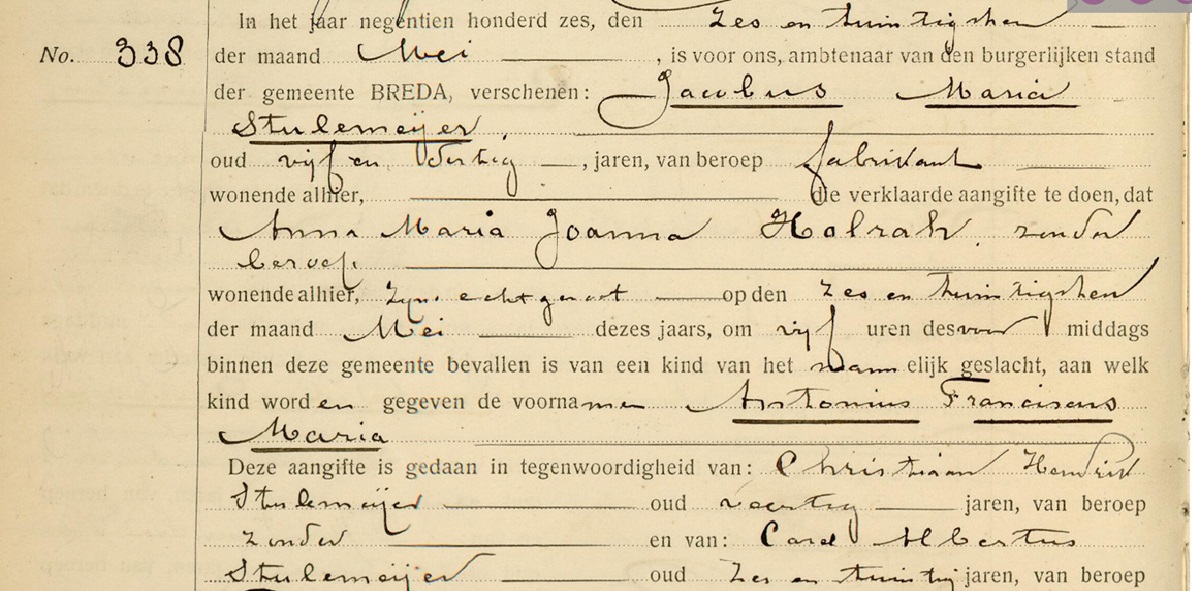 In het jaar negentien honderd zes, den zes en twintigsten
No. 338 der maand Mei, is voor ons, ambtenaar van den burgerlijken stand
der gemeente BREDA, verschenen: Jacobus Maria
Stulemeijer,
oud vijf en dertig, jaren, van beroep fabrikant
wonende alhier, die verklaarde aangifte te doen, dat
Anna Maria Joanna Holrah, zonder
beroep,
wonende alhier, zijne echtgenoot op den zes en twintigsten
der maand Mei dezes jaars, om vijf uren des voor middags
binnen deze gemeente bevallen is van een kind van het mannelijk geslacht, aan welk
kind worden gegeven de voornamen Antonius Franciscus
Maria
Deze aangifte is gedaan in tegenwoordigheid van: Christiaan Hendrik
Stulemeijer oud veertig jaren, van beroep
zonder en van: Carel Albertus
Stulemeijer oud zes en twintig jaren, van beroep